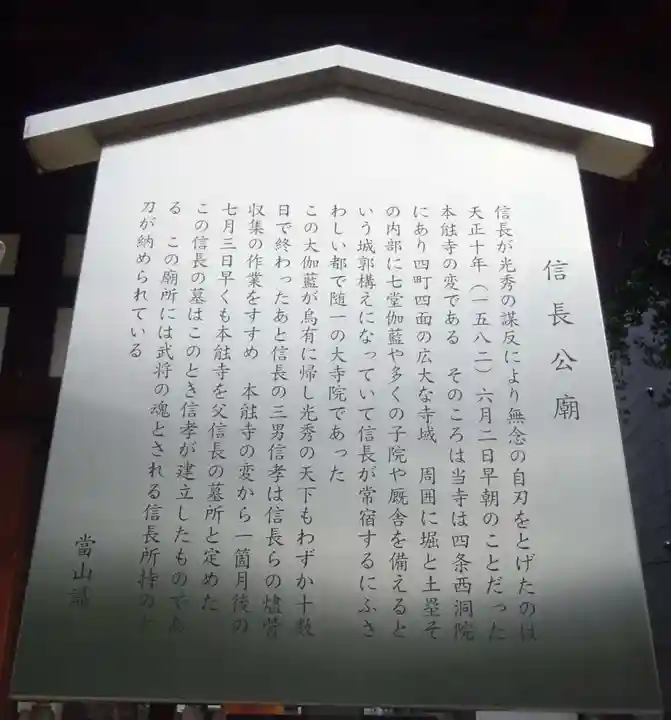 信長公廟
信長が光秀の謀反により無念の自刃をとげたのは
天正十年（一五八二）六月二日早朝のことだった
本能寺の変である　そのころは当寺は四条西洞院
にあり四町四面の広大な寺域　周囲に堀と土塁そ
の内部に七堂伽藍や多くの子院や厩舎を備えると
いう城郭構えになっていて信長が常宿するにふさ
わしい都で随一の大寺院であった
この大伽藍が烏有に帰し光秀の天下もわずか十数
日で終わったあと信長の三男信孝は信長らの燼骨
収集の作業をすすめ　本能寺の変から一箇月後の
七月三日早くも本能寺を父信長の墓所と定めた
この信長の墓はこのとき信孝が建立したものであ
る　この廟所には武将の魂とされる信長所持の
刀が納められている
當山